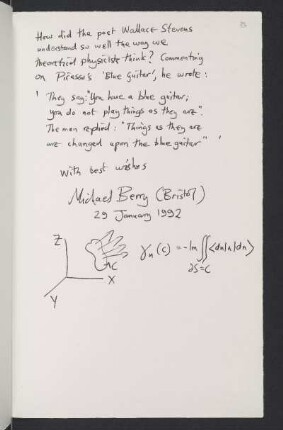 How did the poet Wallace Stevens
understand so well the way we
theoretical physicists think? Commenting
on Picasso's 'Blue Guitar', he wrote:
' They say: "You have a blue guitar;
you do not play things as they are".
The man replied: "Things as they are
are changed upon the blue guitar" '
With best wishes
Michael Berry (Bristol)
29 January 1992
Z
C
X
Y
γn(c) = -Im ∬ ⟨dn|∧|dn⟩
∂S=C